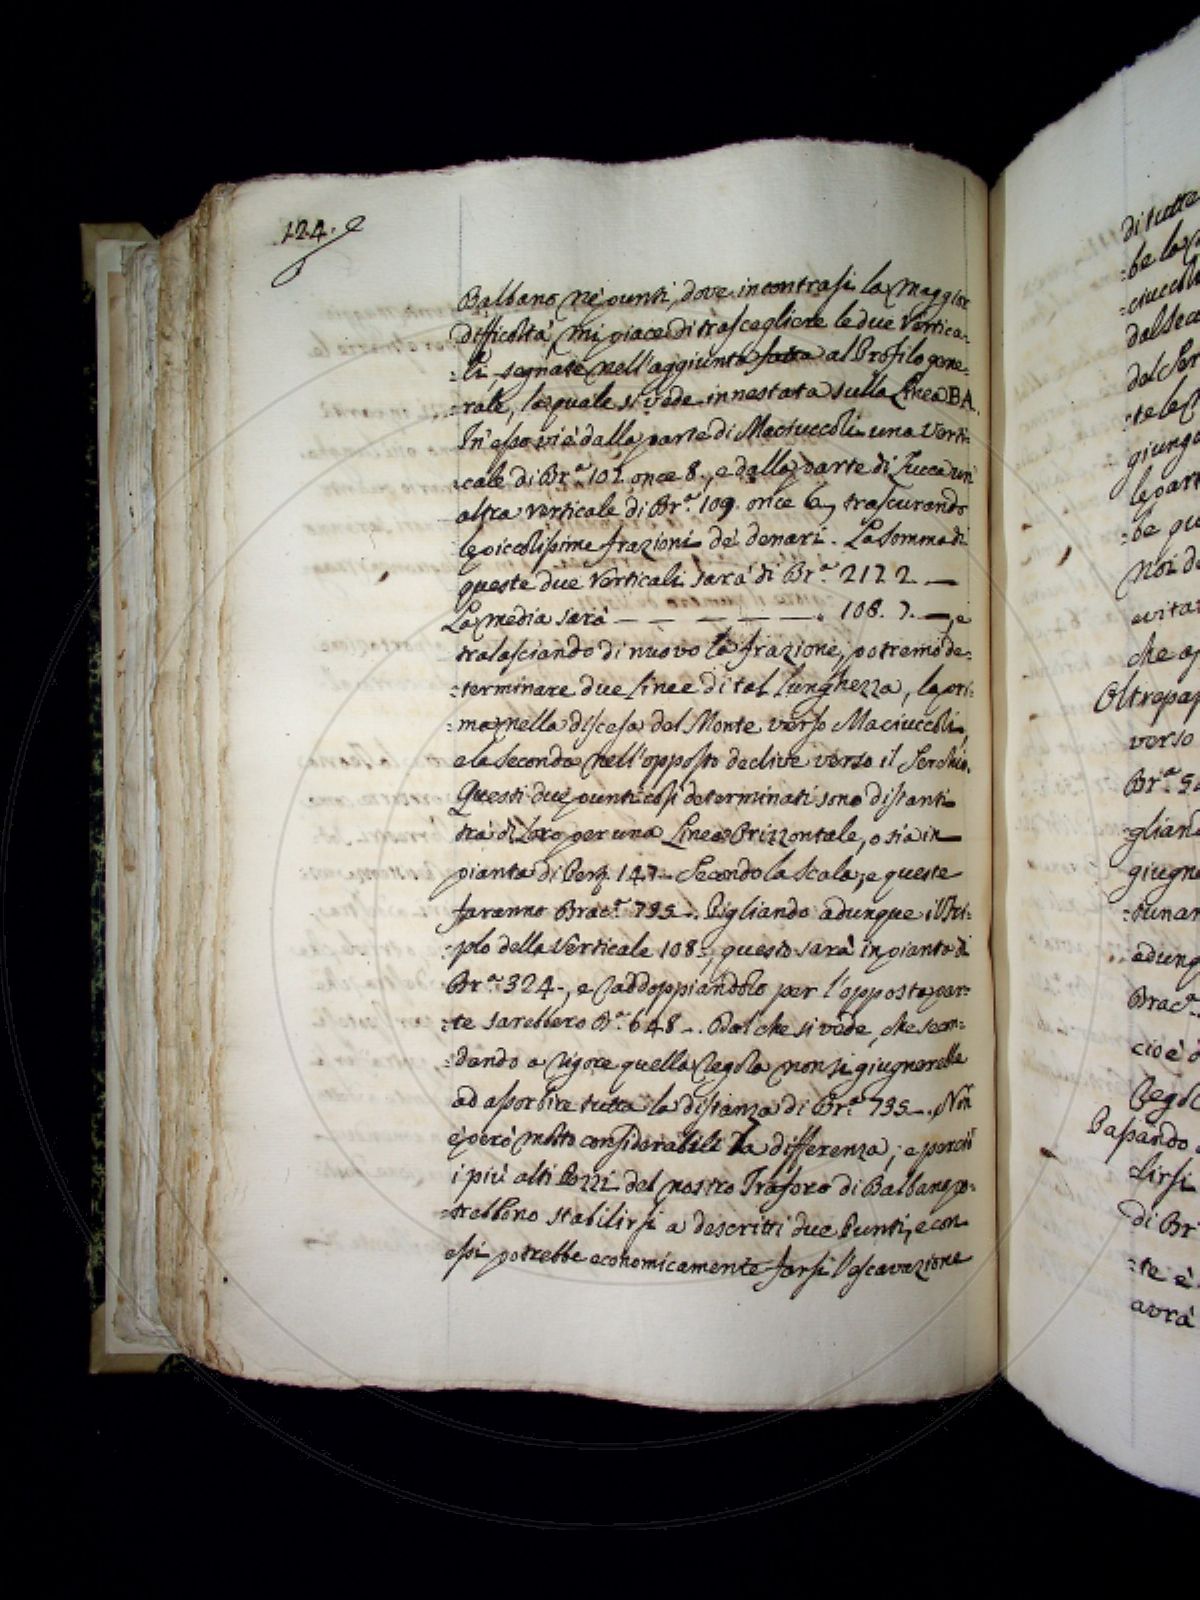 124.
Balbano ne' punti, dove incontrasi la maggior
difficoltà, mi piace di trascegliere le due Vertica=
=li, segnate nell'aggiunta fatta al Profilo gene=
=rale, la quale si vede innestata sulla Linea BA.
In esso vi è dalla parte di Maciuccoli una Verti=
=cale di Br.ª 102 once 8., e dalla parte di Lucca un'
altra verticale di Br.ª 109. once 6, trascurando
le piccolissime frazioni de' denari. La Somma di
queste due Verticali sarà di Br.ª 212 2 —
La media sarà — — — — — — . 106. 7. —, e
tralasciando di nuovo la frazione, potremo de=
=terminare due linee di tal lunghezza, la pri=
=ma nella discesa del Monte verso Maciuccoli,
e la seconda nell'opposto declive verso il Serchio.
Questi due punti così determinati sono distanti
trà di Loro per una Linea Orizzontale, o sia in
pianta di Pert. 147 — Secondo la Scala, e queste
faranno Brac.ª 735 —. Pigliando adunque il Tri=
=plo della Verticale 108 =, questo sarà in pianta di
Br.ª 324 —, e raddoppiandolo per l'opposta par=
=te sarebbero B.ª 648 —. Dal che si vede, che secon=
=dando a rigore quella regola non si giugnerebbe
ad assorbire tutta la distanza di Br.ª 735 —. Non
è però molto considerabile la differenza; e perciò
i più alti Pozzi del nostro Traforo di Balbano po=
=trebbono stabilirsi a descritti due Punti, e con
essi potrebbe economicamente farsi l'escavazione
di tutte
=be la
=ciuccoli
dal
dal Ser
=te le
giung
le part
=be qu
noi d
evita
che a
Oltrepas
verso
Br.ª
=gliand
giugn
=tunar
adunq
Brac.ª
cioè
regol
Passando
=lirsi
di Br
=te è
avrà